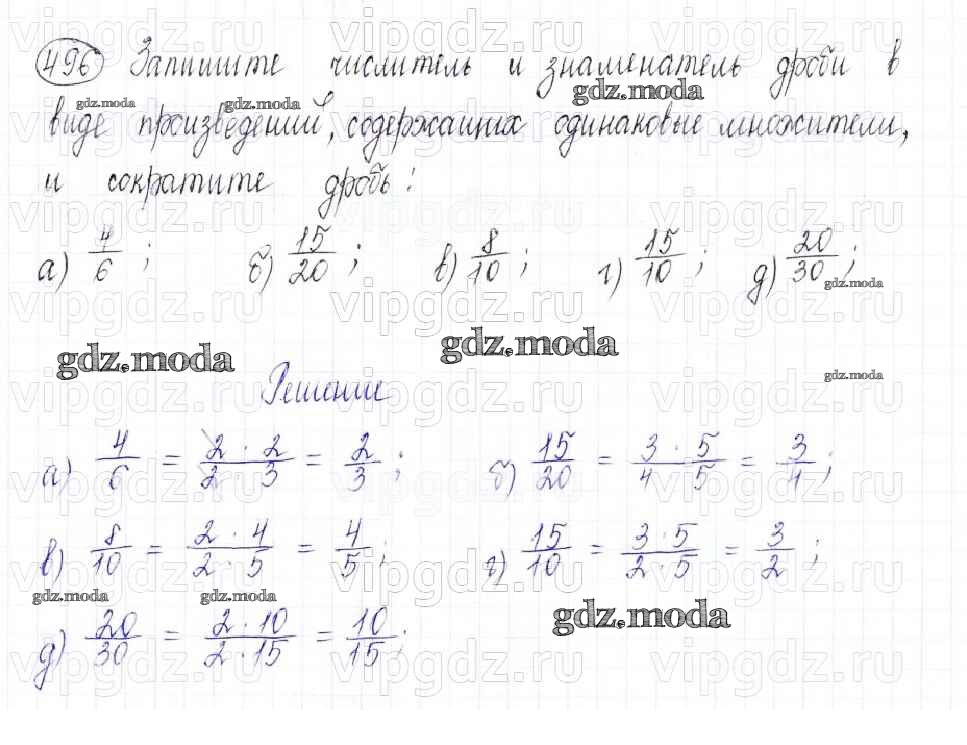 496 Запишите числитель и знаменатель дроби в
виде произведений, содержащих одинаковые множители,
и сократите дробь:
а) 4/6 ; б) 15/20 ; в) 8/10 ; г) 15/10 ; д) 20/30 ;
Решение
а) 4/6 = 2 · 2/2 · 3 = 2/3 ; б) 15/20 = 3 · 5/4 · 5 = 3/4 ;
в) 8/10 = 2 · 4/2 · 5 = 4/5 ; г) 15/10 = 3 · 5/2 · 5 = 3/2 ;
д) 20/30 = 2 · 10/2 · 15 = 10/15 ;
gdz.moda
vipgdz.ru